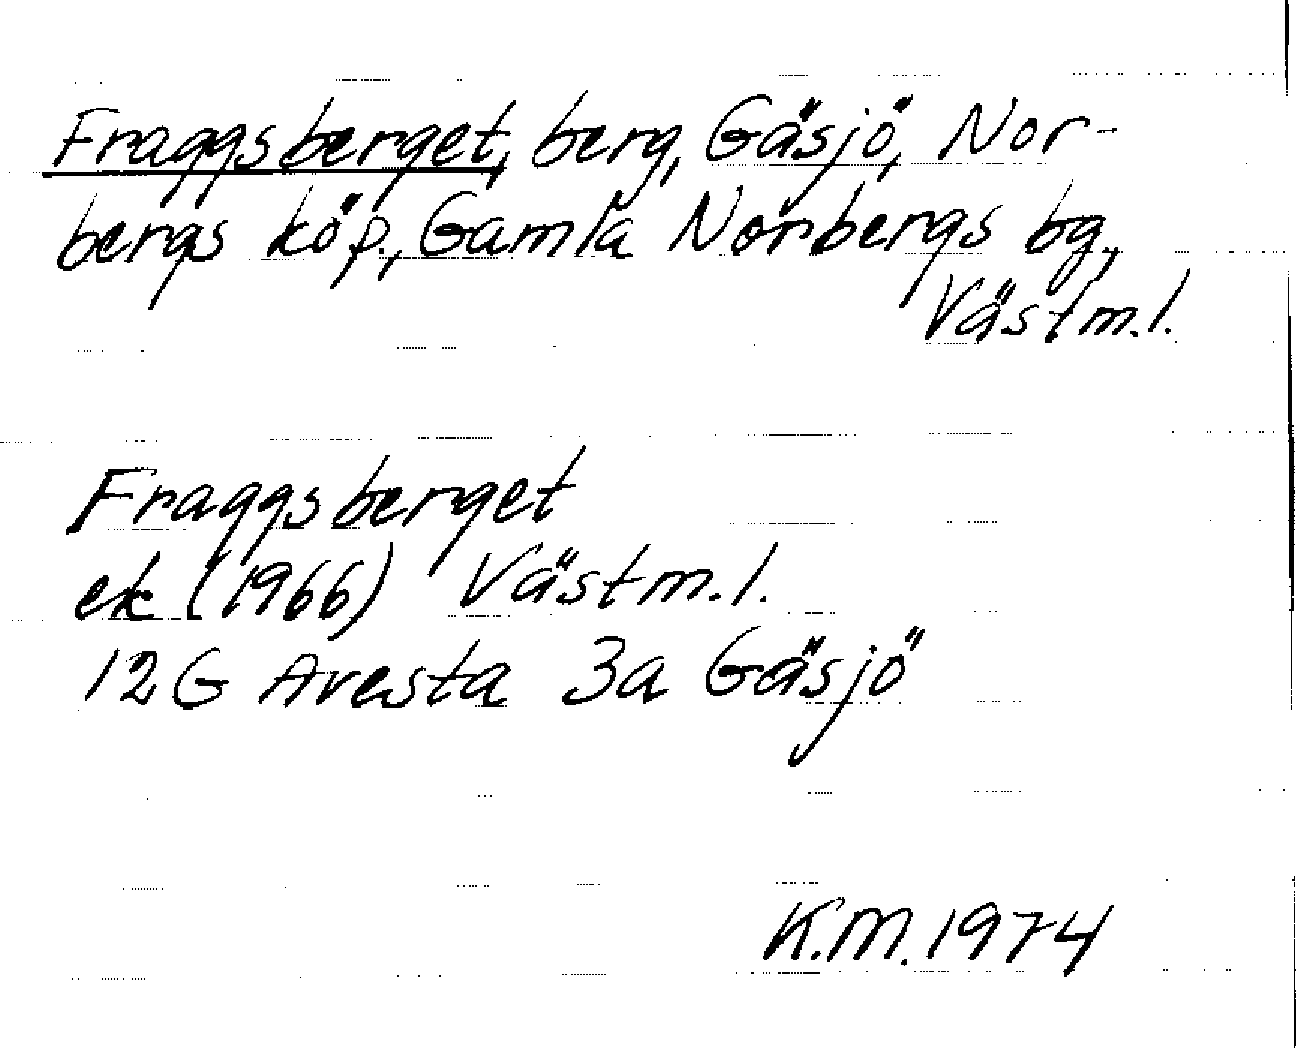 Fraggsberget, berg, Gäsjö, Nor-
bergs köp., Gamla Norbergs bg,
Västm.l.
Fraggsberget
ek (1966) Västm.l.
12G Avesta 3a Gäsjö
K.M. 1974